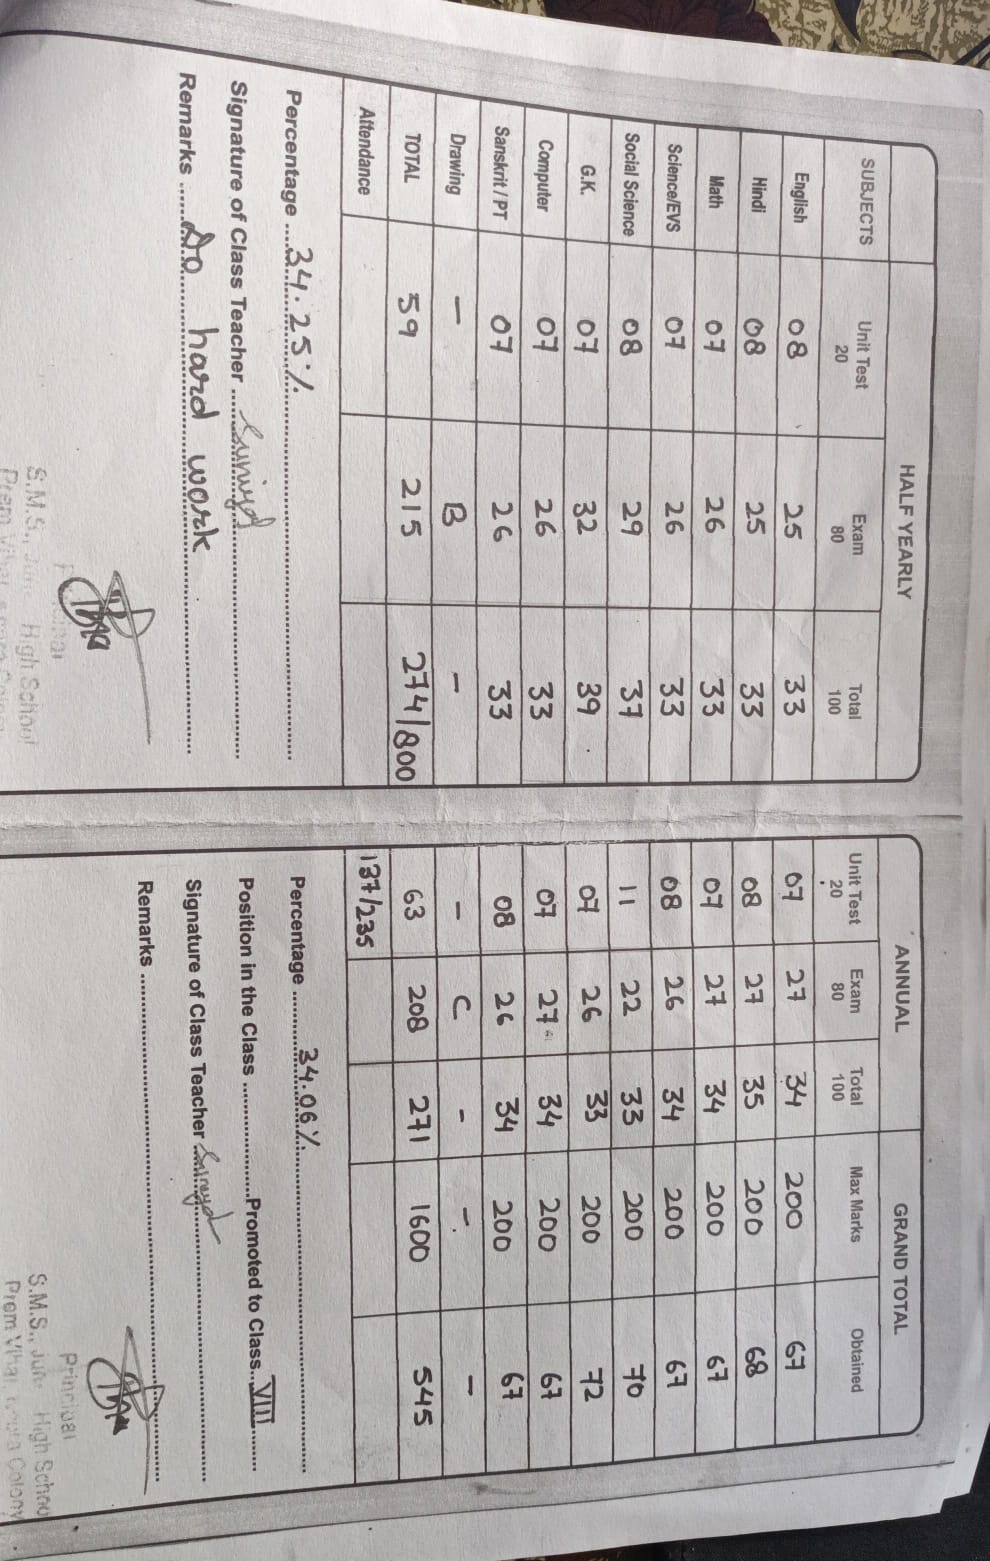 HALF YEARLY ANNUAL GRAND TOTAL
SUBJECTS Unit Test 20 Exam 80 Total 100 Unit Test 20 Exam 80 Total 100 Max Marks Obtained
English 08 25 33 07 27 34 200 67
Hindi 08 25 33 08 27 35 200 68
Math 07 26 33 07 27 34 200 67
Science/EVS 07 26 33 08 26 34 200 67
Social Science 08 29 37 11 22 33 200 70
G.K. 07 32 39 07 26 33 200 72
Computer 07 26 33 07 27 34 200 67
Sanskrit / PT 07 26 33 08 26 34 200 67
Drawing — B — — C - - —
TOTAL 59 215 274/800 63 208 271 1600 545
Attendance 137/235
Percentage 34.25%
Signature of Class Teacher
Remarks Do hard work
S.M.S., High School
Prem
Percentage 34.06%
Position in the Class Promoted to Class VIII
Signature of Class Teacher
Remarks
Principal
S.M.S., High
Prem Vihar Colony